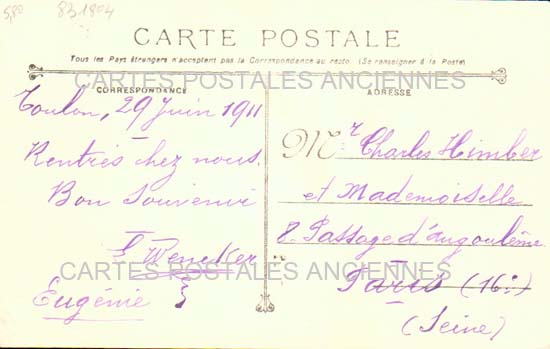 5,80 831804
CARTE POSTALE
Tous les Pays étrangers n'acceptent pas la Correspondance au recto. (Se renseigner à la Poste)
CARTES POSTALES ANCIENNES
CORRESPONDANCE
ADRESSE
Toulon, 29 Juin 1911
Rentrés chez nous.
Bon Souvenir
Eugénie
Mr Charles Himber
et Mademoiselle
8. Passage d'angoulême
Paris (16e)
(Seine)
CARTES POSTALES ANCIENNES